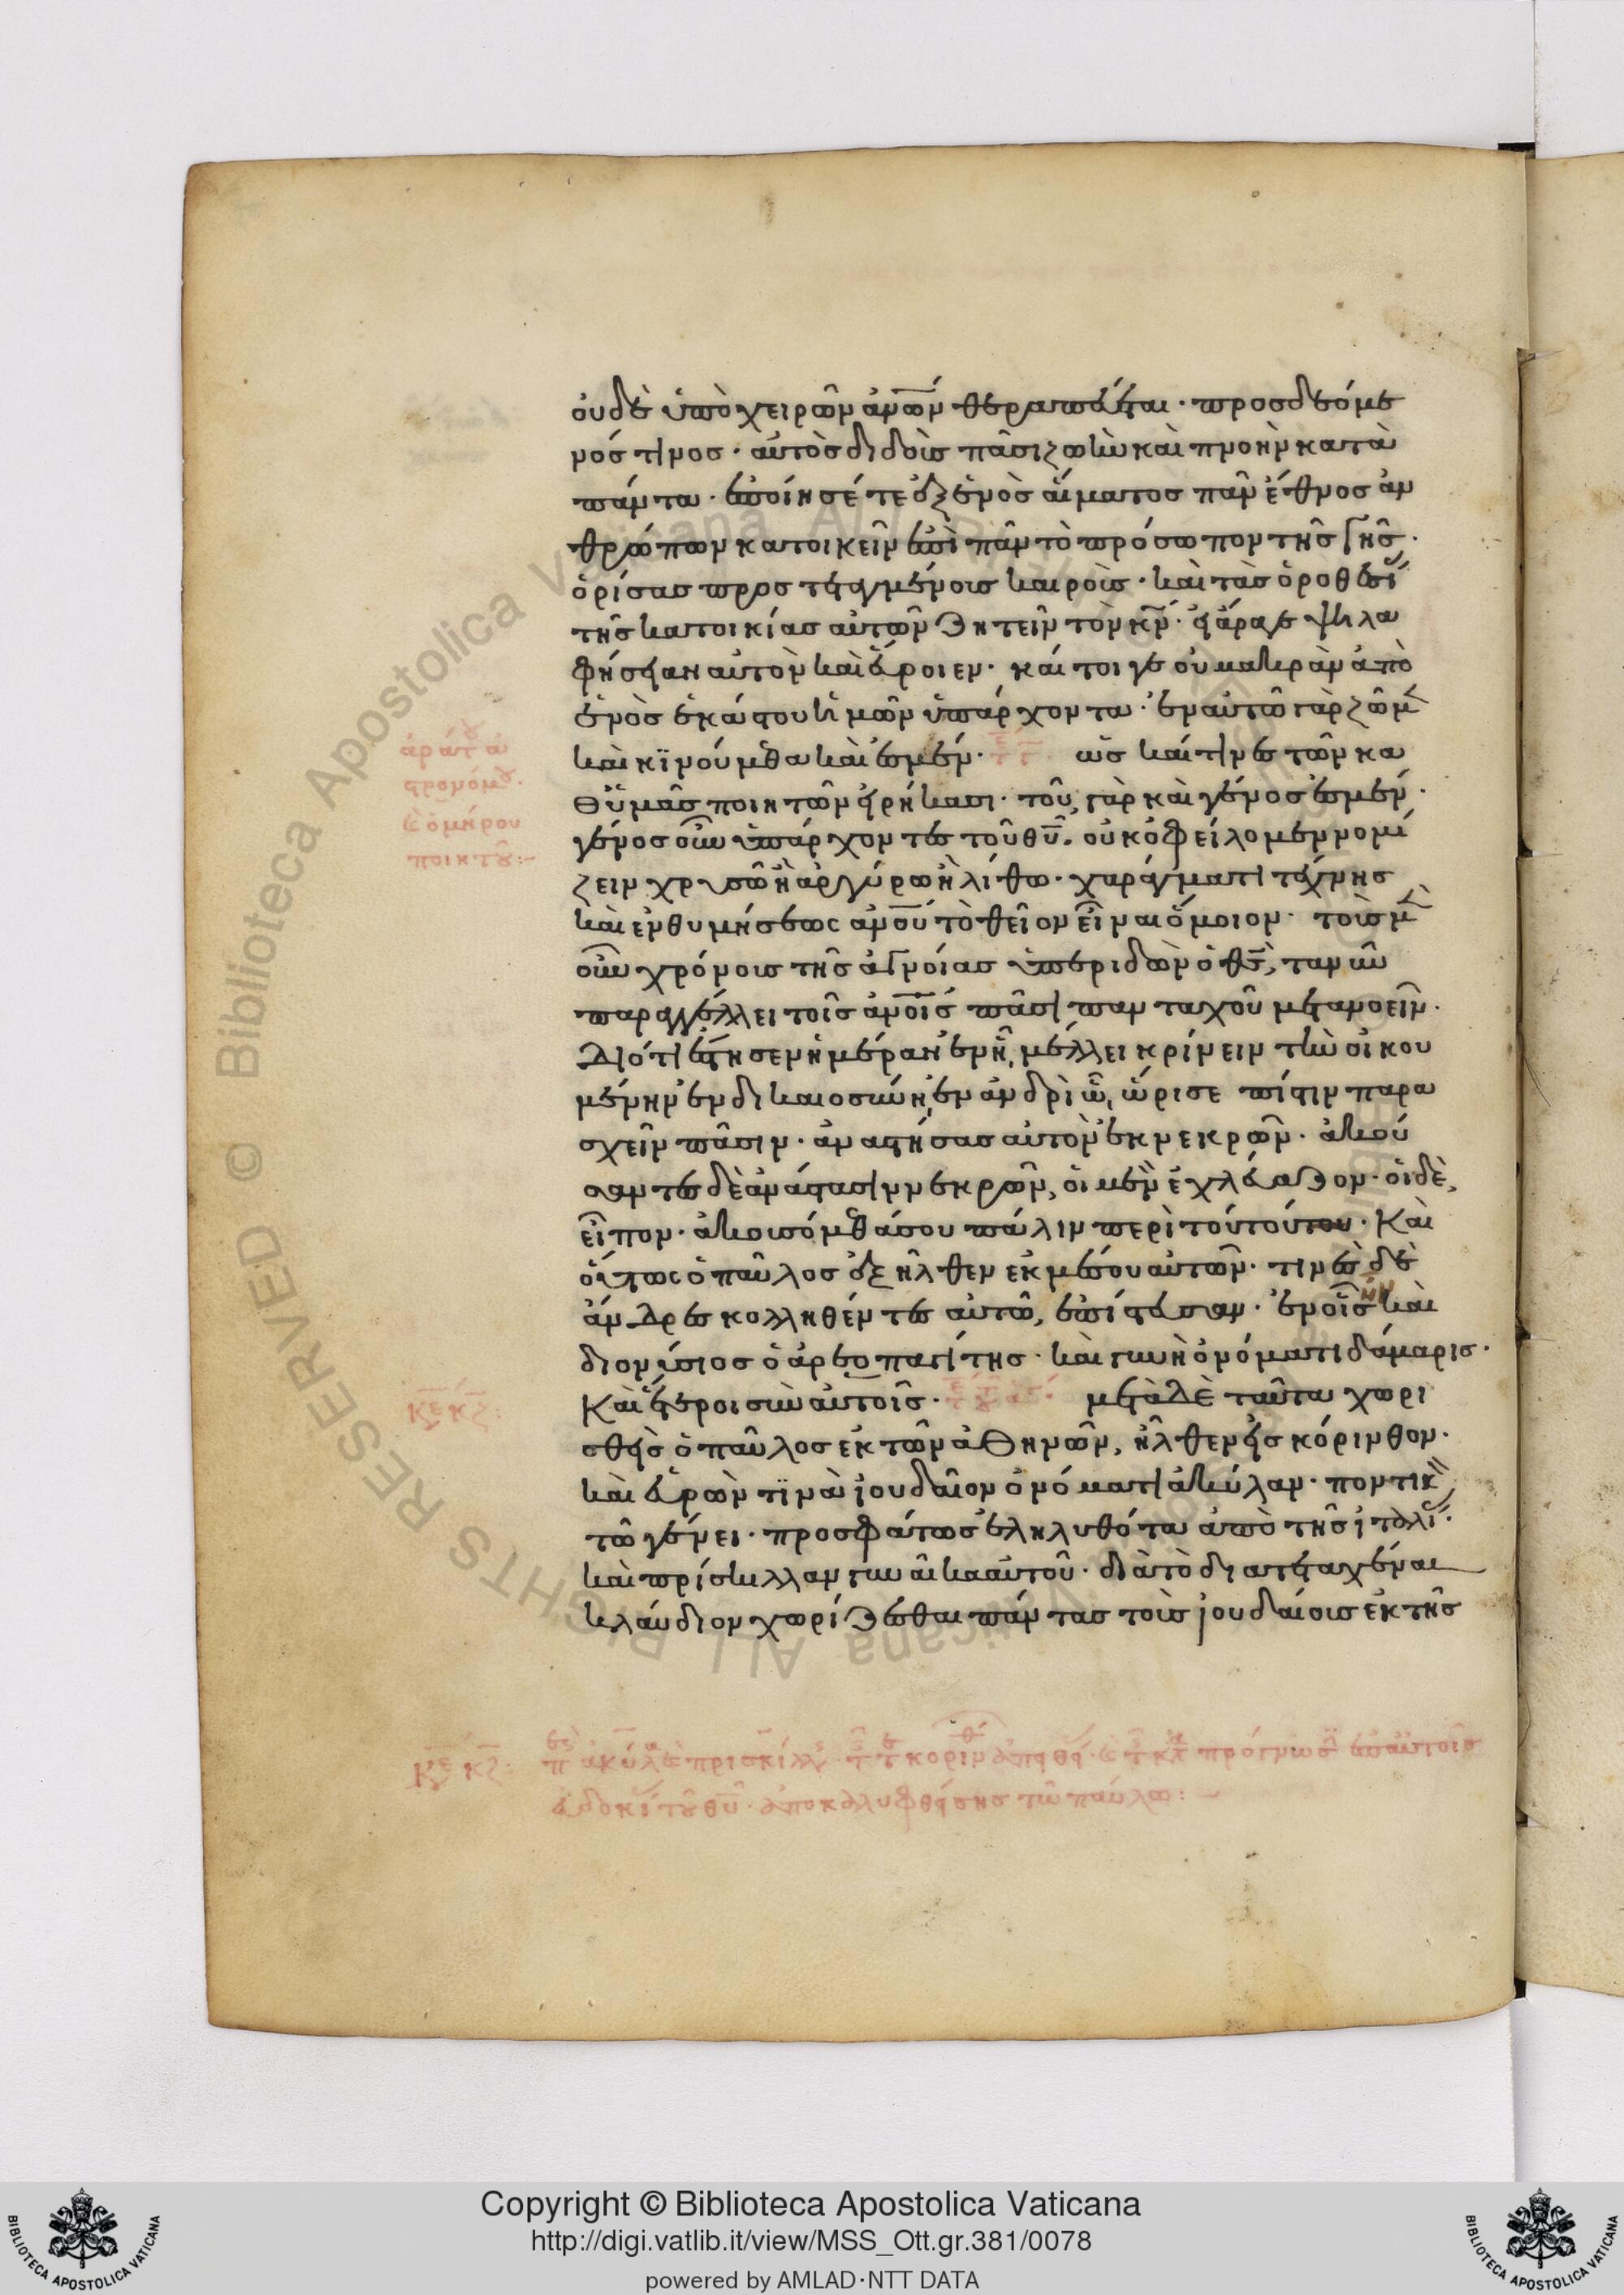 οὐδὲ ὑπὸ χειρῶν ἀνῶν θεραπεύεται· προσδεόμε
νός τινος· αὐτὸς διδοὺς πᾶσι ζωὴν καὶ πνοὴν κατὰ
πάντα· ἐποίησέ τε ἐξ ἑνὸς αἵματος πᾶν ἔθνος ἀν
θρώπων κατοικεῖν ἐπὶ πᾶν τὸ πρόσωπον τῆς γῆς·
ὁρίσας προστεταγμένους καιροὺς· καὶ τὰς ὁροθεσί
τῆς κατοικίας αὐτῶν ζητεῖν τὸν κν· εἰ ἄραγε ψηλα
φήσειαν αὐτὸν καὶ εὕροιεν· καί τοι γε οὐ μακρὰν ἀπὸ
ἑνὸς ἑκάστου ἡμῶν ὑπάρχοντα· ἐν αὐτῷ γὰρ ζῶμ
καὶ κινούμεθα καὶ ἐσμέν· ὡς καί τινες τῶν κα
θ' ὑμᾶς ποιητῶν εἰρήκασι· τοῦ γὰρ καὶ γένος ἐσμέν·
γένος οὖν ὑπάρχοντες τοῦ θυ· οὐκ ὀφείλομεν νομί
ζειν χρυσῷ ἢ ἀργύρῳ ἢ λίθῳ· χαράγματι τέχνης
καὶ ἐνθυμήσεως ανου τὸ θεῖον εἶναι ὅμοιον· τοὺς μ
οὖν χρόνους τῆς ἀγνοίας ὑπεριδὼν ὁ θς, τανῦν
παραγγέλλει τοῖς ἀνοις πᾶσι πανταχοῦ μετανοεῖν·
Διότι ἔστησεν ἡμέραν ἐν ᾗ, μέλλει κρίνειν τὴν οἰκου
μένην ἐν δικαιοσύνῃ, ἐν ἀνδρὶ ᾧ, ὥρισε πίστιν παρα
σχεῖν πᾶσιν· ἀναστήσας αὐτὸν ἐκ νεκρῶν· ἀκού
σαντες δὲ ἀνάστασιν νεκρῶν, οἱ μὲν ἐχλεύαζον· οἱ δὲ,
εἶπον· ἀκουσόμεθά σου πάλιν περὶ τούτου· Καὶ
οὕτως ὁ παῦλος ἐξῆλθεν ἐκ μέσου αὐτῶν· τινὲς δὲ
ἄνδρες κολληθέντες αὐτῷ, ἐπίστευσαν· ἐν οἷς ἦν καὶ
διονύσιος ὁ ἀρεοπαγίτης· καὶ γυνὴ ὀνόματι δάμαρις·
Καὶ ἕτεροι σὺν αὐτοῖς· μετὰ δὲ ταῦτα χωρι
σθεὶς ὁ παῦλος ἐκ τῶν ἀθηνῶν, ἦλθεν εἰς κόρινθον·
καὶ εὑρὼν τινὰ ἰουδαῖον ὀνόματι ἀκύλαν· ποντικ
τῷ γένει· προσφάτως ἐληλυθότα ἀπὸ τῆς ἰταλί·
καὶ πρίσκιλλαν γυναῖκα αὐτοῦ· διὰ τὸ διατεταχέναι
κλαύδιον χωρίζεσθαι πάντας τοὺς ἰουδαίους ἐκ τῆς
ἀράτου ἀ
στρονόμου·
καὶ ὁμήρου
ποιητοῦ:-
κε κζ:
κε κζ: π ἀκύλα καὶ πρισκίλλ
εὐδοκί τοῦ θυ· ἀποκαλυφθείσης τῷ παύλῳ:-
Copyright © Biblioteca Apostolica Vaticana
http://digi.vatlib.it/view/MSS_Ott.gr.381/0078
powered by AMLAD·NTT DATA